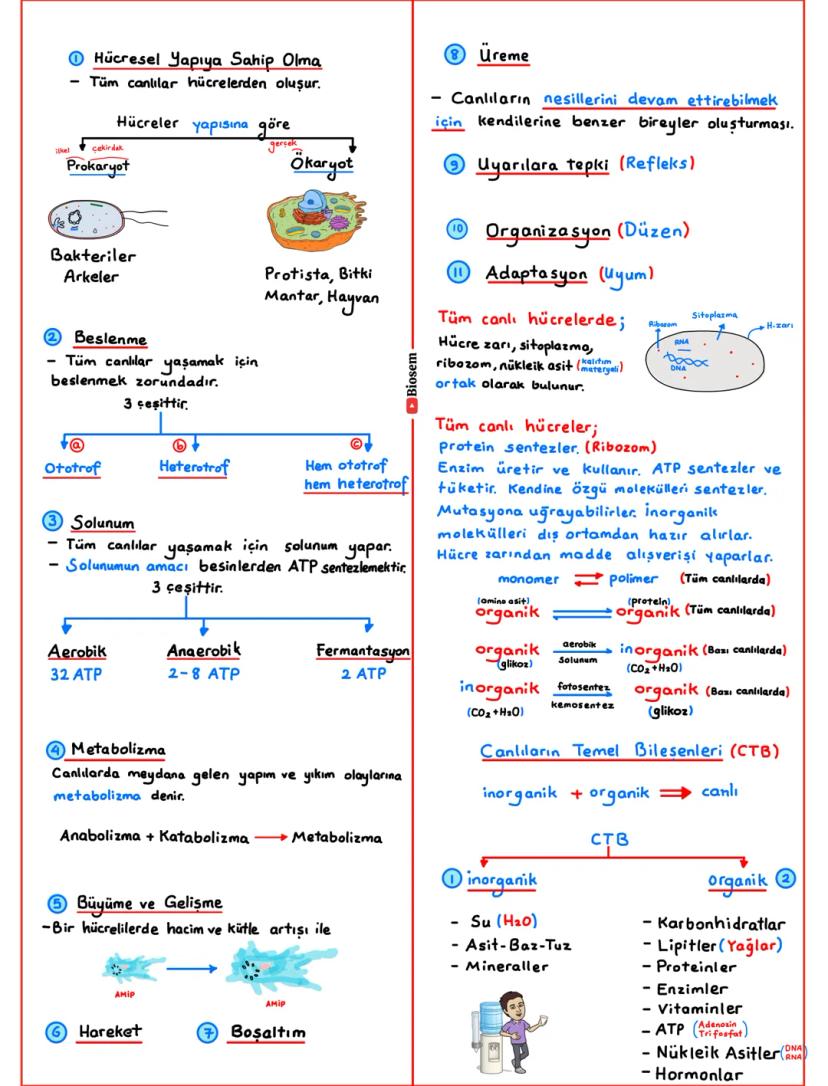 1 Hücresel Yapıya Sahip Olma
- Tüm canlılar hücrelerden oluşur.
Hücreler yapısına göre
ilkel çekirdek
Prokaryot
gerçek
Ökaryot
Bakteriler
Arkeler
Protista, Bitki
Mantar, Hayvan
2 Beslenme
- Tüm canlılar yaşamak için
beslenmek zorundadır.
3 çeşittir.
a b c
Ototrof Heterotrof Hem ototrof
hem heterotrof
3 Solunum
- Tüm canlılar yaşamak için solunum yapar.
- Solunumun amacı besinlerden ATP sentezlemektir.
3 çeşittir.
Aerobik Anaerobik Fermantasyon
32 ATP 2-8 ATP 2 ATP
4 Metabolizma
Canlılarda meydana gelen yapım ve yıkım olaylarına
metabolizma denir.
Anabolizma + Katabolizma → Metabolizma
5 Büyüme ve Gelişme
- Bir hücrelilerde hacim ve kütle artışı ile
AMİP
AMİP
6 Hareket 7 Boşaltım
Biosem
8 Üreme
- Canlıların nesillerini devam ettirebilmek
için kendilerine benzer bireyler oluşturması.
9 Uyarılara tepki (Refleks)
10 Organizasyon (Düzen)
11 Adaptasyon (Uyum)
Tüm canlı hücrelerde;
Hücre zarı, sitoplazma,
ribozom, nükleik asit (kalıtım materyeli)
ortak olarak bulunur.
Ribozom Sitoplazma H.zarı
RNA
DNA
Tüm canlı hücreler;
Protein sentezler. (Ribozom)
Enzim üretir ve kullanır. ATP sentezler ve
tüketir. Kendine özgü molekülleri sentezler.
Mutasyona uğrayabilirler. İnorganik
molekülleri dış ortamdan hazır alırlar.
Hücre zarından madde alışverişi yaparlar.
monomer ⇄ polimer (Tüm canlılarda)
(amino asit) (protein)
organik ⇄ organik (Tüm canlılarda)
organik aerobik solunum inorganik (Bazı canlılarda)
(glikoz) (CO2+H2O)
inorganik fotosentez kemosentez organik (Bazı canlılarda)
(CO2+H2O) (glikoz)
Canlıların Temel Bileşenleri (CTB)
inorganik + organik ⇒ canlı
CTB
1 inorganik
organik 2
- Su (H2O)
- Asit-Baz-Tuz
- Mineraller
- Karbonhidratlar
- Lipitler (Yağlar)
- Proteinler
- Enzimler
- Vitaminler
- ATP (Adenozin Trifosfat)
- Nükleik Asitler (DNA RNA)
- Hormonlar